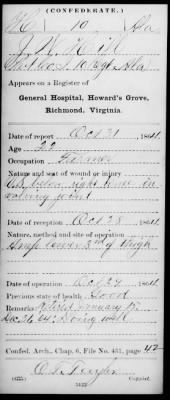 (CONFEDERATE.)
H 10 Ala
J. W. Hill
Co. I. 10 Regt Ala
Appears on a Register of
General Hospital, Howard's Grove,
Richmond, Virginia.
Date of report Oct 31 1864.
Age 22
Occupation Farmer
Nature and seat of wound or injury
below right knee in
volving joint
Date of reception Oct 28 1864.
Nature, method and site of operation
Amp lower 3rd of thigh
Date of operation Oct 29 1864.
Previous state of health Good
Remarks: Retired January
Dec. 31, 64: Doing well
Confed. Arch., Chap. 6, File No. 431, page 42
Copyist.